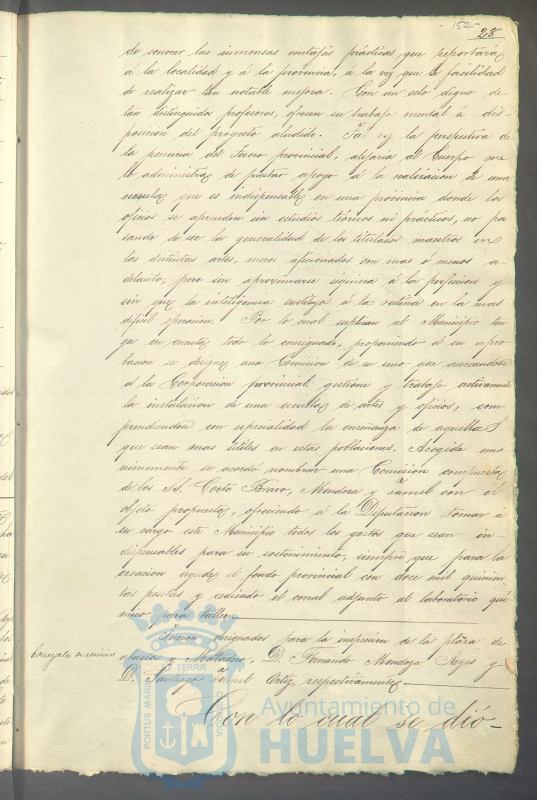 -152-
28
de conocer las inmensas ventajas prácticas que reportará
á la localidad y á la provincia, á la vez que la facilidad
de realizar tan notable mejora. Con un celo digno de
tan distinguidos profesores, ofrecen su trabajo mental á dis-
posicion del proyecto aludido. Tal vez la perspectiva de
la penuria del Tesoro provincial, alejaria al Cuerpo que
lo administra de prestar apoyo á la realizacion de una
escuela que es indispensable en una provincia donde los
oficios se aprenden sin estudios teóricos ni prácticos, no pa
sando de ser la generalidad de los titulados maestros en
las distintas artes, meros aficionados con mas ó menos a-
delanto, pero sin aproximarse siquiera á la perfeccion y
sin que la inteligencia sustituya á la rutina en la mas
dificil operacion. Por lo cual suplican al Municipio ten
ga en cuenta todo lo consignado, proponiendo á su apro
bacion se designe una Comision de su seno que acercandose
á la Corporacion provincial gestione y trabaje activamente
la instalacion de una escuela de artes y oficios, com
prendiendose con especialidad la enseñanza de aquellas
que sean mas útiles en estas poblaciones. Acogida una
nimemente se acordó nombrar una Comision compuesta
de los SS. Corte Bravo, Mendoza y con el
objeto propuesto, ofreciendo á la Diputacion tomar á
su cargo este Municipio todos los gastos que sean in-
dispensables para su sostenimiento, siempre que para la
creacion ayude el fondo provincial con doce mil quinien
tas pesetas y cediendo el corral adjunto al laboratorio quí
mico para taller.
Fueron designados para la inspeccion de la plaza de
abastos y Matadero, D. Fernando Mendoza Reyes y
D. Santiago Ortiz respectivamente
Con lo cual se dió-
PORTUS MARIS
TERRA
Ayuntamiento de
HUELVA